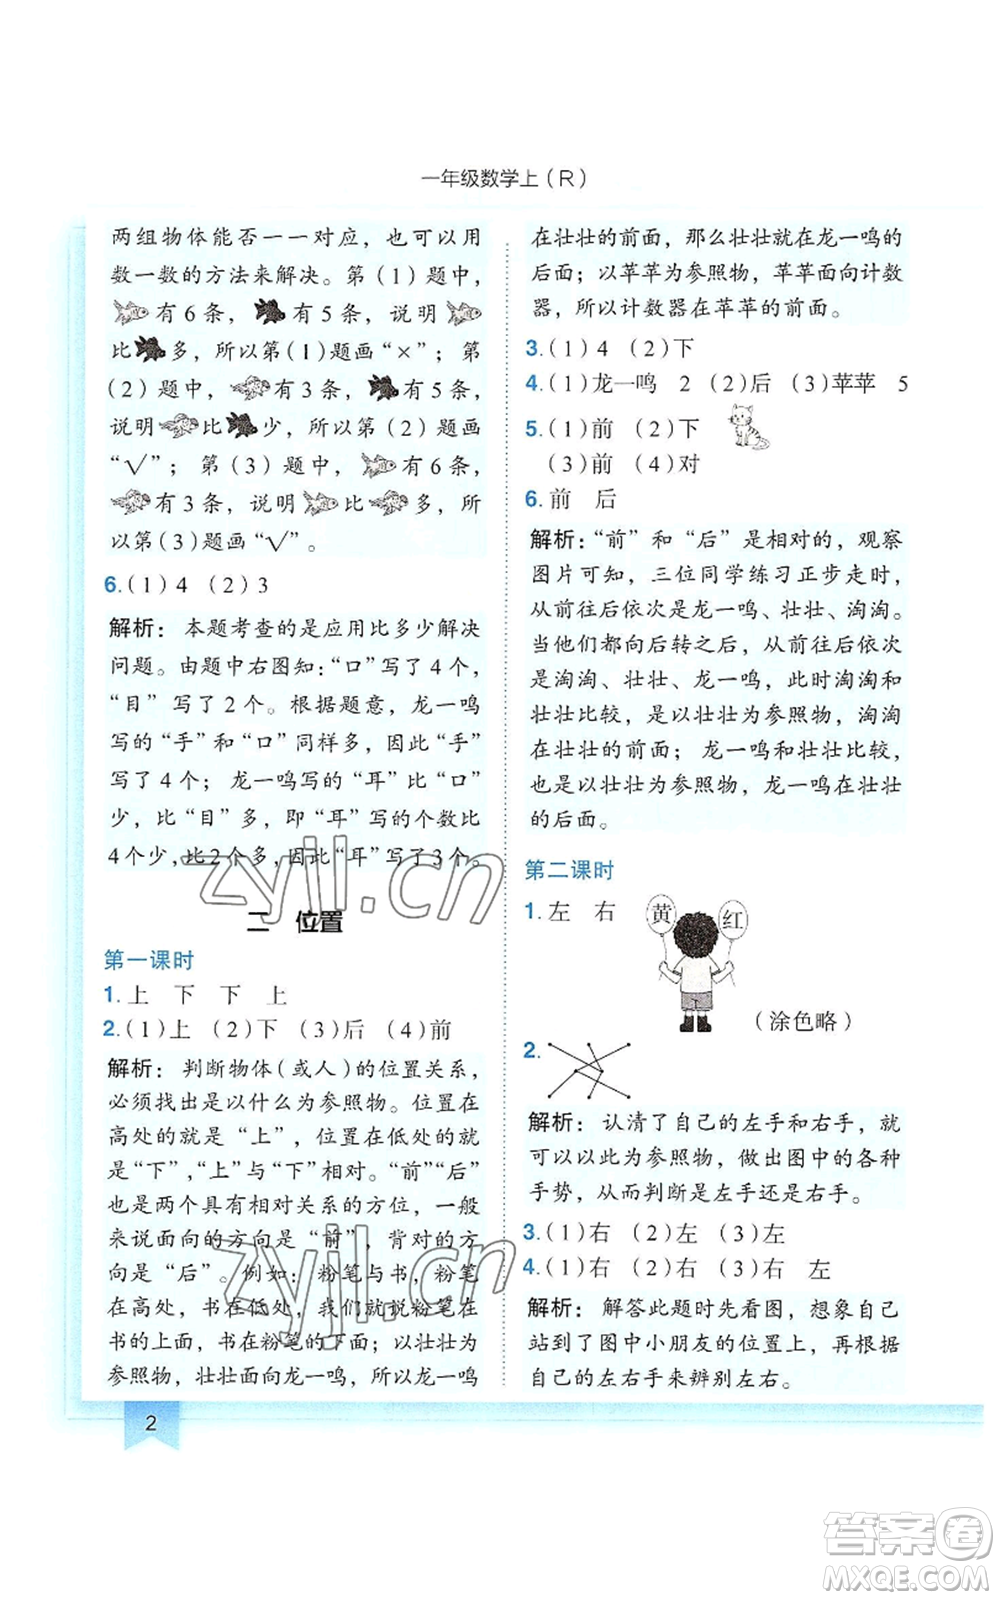 一年级数学上(R)
两组物体能否一一对应，也可以用
数一数的方法来解决。第(1)题中，
有6条，有5条，说明
比多，所以第(1)题画“×”；第
(2)题中，有3条，有5条，
说明比少，所以第(2)题画
“√”；第(3)题中，有6条，
有3条，说明比多，所
以第(3)题画“√”。
6.(1)4 (2)3
解析：本题考查的是应用比多少解决
问题。由题中右图知：“口”写了4个，
“目”写了2个。根据题意，龙一鸣
写的“手”和“口”同样多，因此“手”
写了4个；龙一鸣写的“耳”比“口”
少，比“目”多，即“耳”写的个数比
4个少，比2个多，因此“耳”写了3个。
二 位置
第一课时
1.上 下 下 上
2.(1)上 (2)下 (3)后 (4)前
解析：判断物体(或人)的位置关系，
必须找出是以什么为参照物。位置在
高处的就是“上”，位置在低处的就
是“下”，“上”与“下”相对。“前”“后”
也是两个具有相对关系的方位，一般
来说面向的方向是“前”，背对的方
向是“后”。例如：粉笔与书，粉笔
在高处，书在低处，我们就说粉笔在
书的上面，书在粉笔的下面；以壮壮为
参照物，壮壮面向龙一鸣，所以龙一鸣
在壮壮的前面，那么壮壮就在龙一鸣的
后面；以苹苹为参照物，苹苹面向计数
器，所以计数器在苹苹的前面。
3.(1)4 (2)下
4.(1)龙一鸣 2 (2)后 (3)苹苹 5
5.(1)前 (2)下
(3)前 (4)对
6.前 后
解析：“前”和“后”是相对的，观察
图片可知，三位同学练习正步走时，
从前往后依次是龙一鸣、壮壮、淘淘。
当他们都向后转之后，从前往后依次
是淘淘、壮壮、龙一鸣，此时淘淘和
壮壮比较，是以壮壮为参照物，淘淘
在壮壮的前面；龙一鸣和壮壮比较，
也是以壮壮为参照物，龙一鸣在壮壮
的后面。
第二课时
1.左 右 黄 红
(涂色略)
2.
解析：认清了自己的左手和右手，就
可以以此为参照物，做出图中的各种
手势，从而判断是左手还是右手。
3.(1)右 (2)左 (3)左
4.(1)右 (2)右 左
解析：解答此题时先看图，想象自己
站到了图中小朋友的位置上，再根据
自己的左右手来辨别左右。
2
zyjl.cn
zyjl.cn
答案卷
MXQE.COM